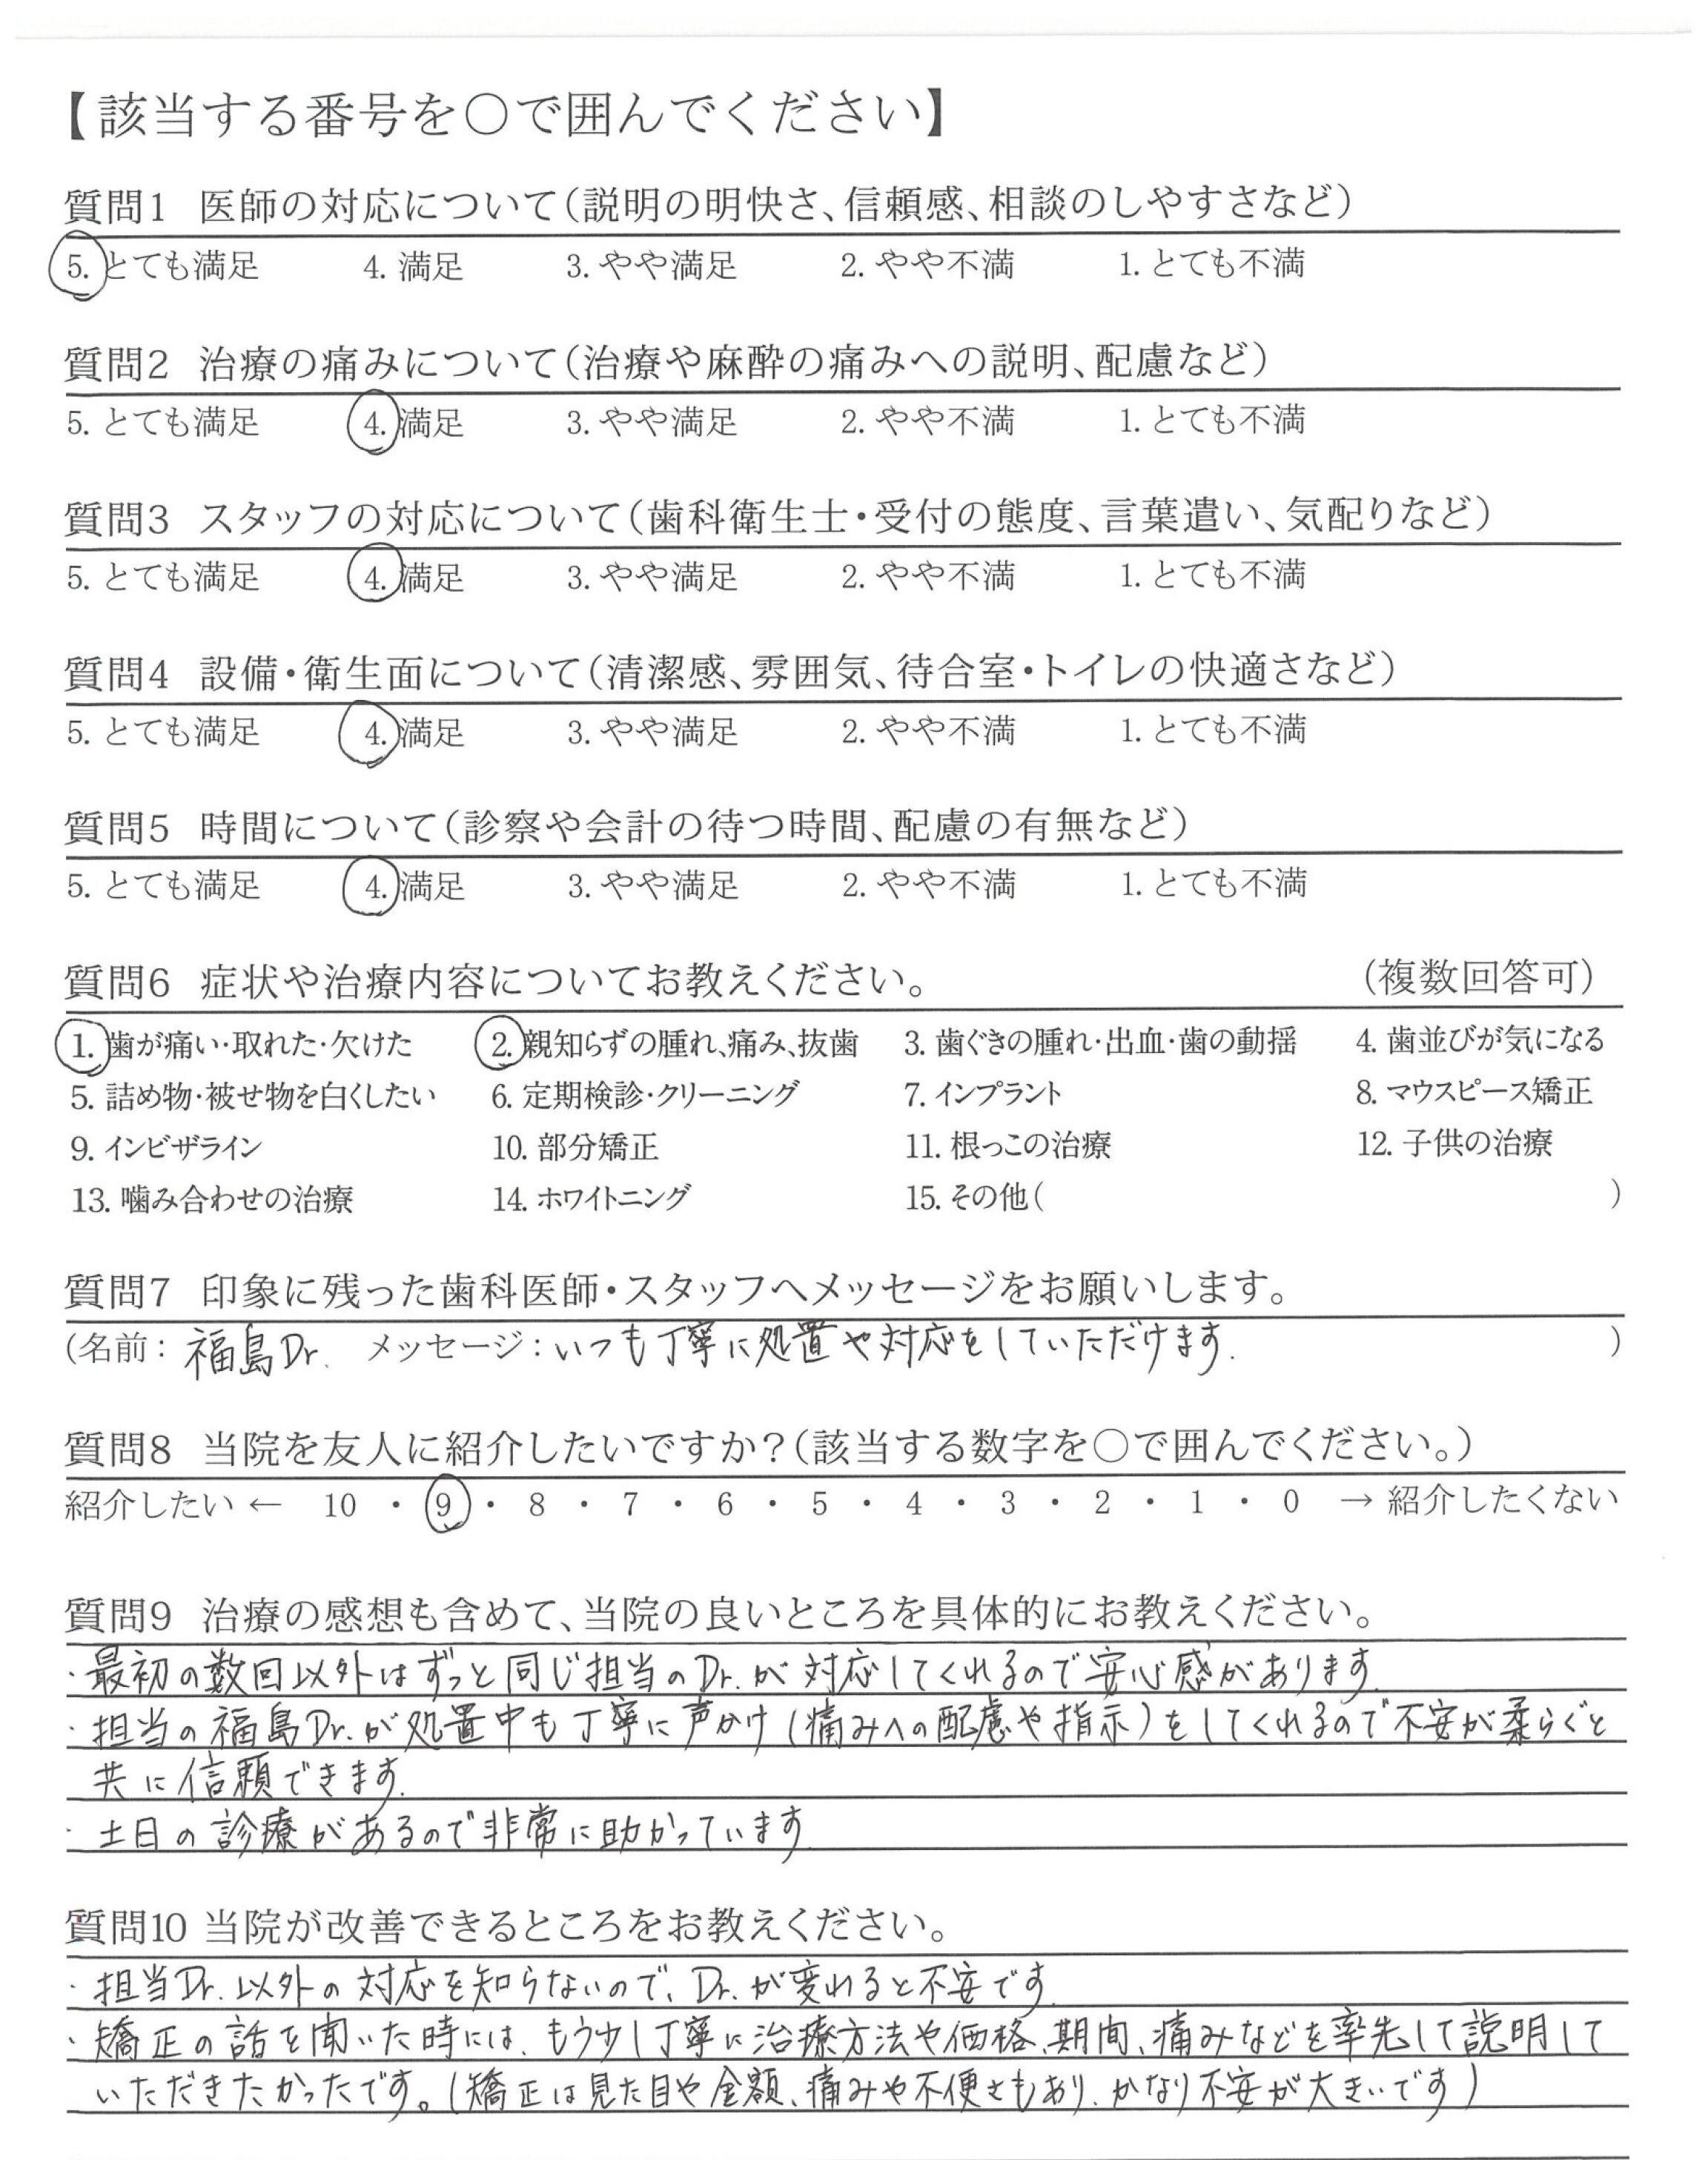 【該当する番号を○で囲んでください】
質問1 医師の対応について(説明の明快さ、信頼感、相談のしやすさなど)
5. とても満足 4. 満足 3. やや満足 2. やや不満 1. とても不満
質問2 治療の痛みについて(治療や麻酔の痛みへの説明、配慮など)
5. とても満足 4. 満足 3. やや満足 2. やや不満 1. とても不満
質問3 スタッフの対応について(歯科衛生士・受付の態度、言葉遣い、気配りなど)
5. とても満足 4. 満足 3. やや満足 2. やや不満 1. とても不満
質問4 設備・衛生面について(清潔感、雰囲気、待合室・トイレの快適さなど)
5. とても満足 4. 満足 3. やや満足 2. やや不満 1. とても不満
質問5 時間について(診察や会計の待つ時間、配慮の有無など)
5. とても満足 4. 満足 3. やや満足 2. やや不満 1. とても不満
質問6 症状や治療内容についてお教えください。 (複数回答可)
1. 歯が痛い・取れた・欠けた 2. 親知らずの腫れ、痛み、抜歯 3. 歯ぐきの腫れ・出血・歯の動揺 4. 歯並びが気になる
5. 詰め物・被せ物を白くしたい 6. 定期検診・クリーニング 7. インプラント 8. マウスピース矯正
9. インビザライン 10. 部分矯正 11. 根っこの治療 12. 子供の治療
13. 噛み合わせの治療 14. ホワイトニング 15. その他( )
質問7 印象に残った歯科医師・スタッフへメッセージをお願いします。
(名前: 福島Dr. メッセージ: いつも丁寧に処置や対応をしていただけます. )
質問8 当院を友人に紹介したいですか?(該当する数字を○で囲んでください。)
紹介したい ← 10 ・ 9 ・ 8 ・ 7 ・ 6 ・ 5 ・ 4 ・ 3 ・ 2 ・ 1 ・ 0 → 紹介したくない
質問9 治療の感想も含めて、当院の良いところを具体的にお教えください。
・最初の数回以外はずっと同じ担当のDr.が対応してくれるので安心感があります.
・担当の福島Dr.が処置中も丁寧に声かけ(痛みへの配慮や指示)をしてくれるので不安が柔らぐと
共に信頼できます.
・土日の診療があるので非常に助かっています.
質問10 当院が改善できるところをお教えください。
・担当Dr.以外の対応を知らないので、Dr.が変わると不安です.
・矯正の話を聞いた時には、もう少し丁寧に治療方法や価格、期間、痛みなどを率先して説明して
いただきたかったです。(矯正は見た目や金額、痛みや不便さもあり、かなり不安が大きいです)